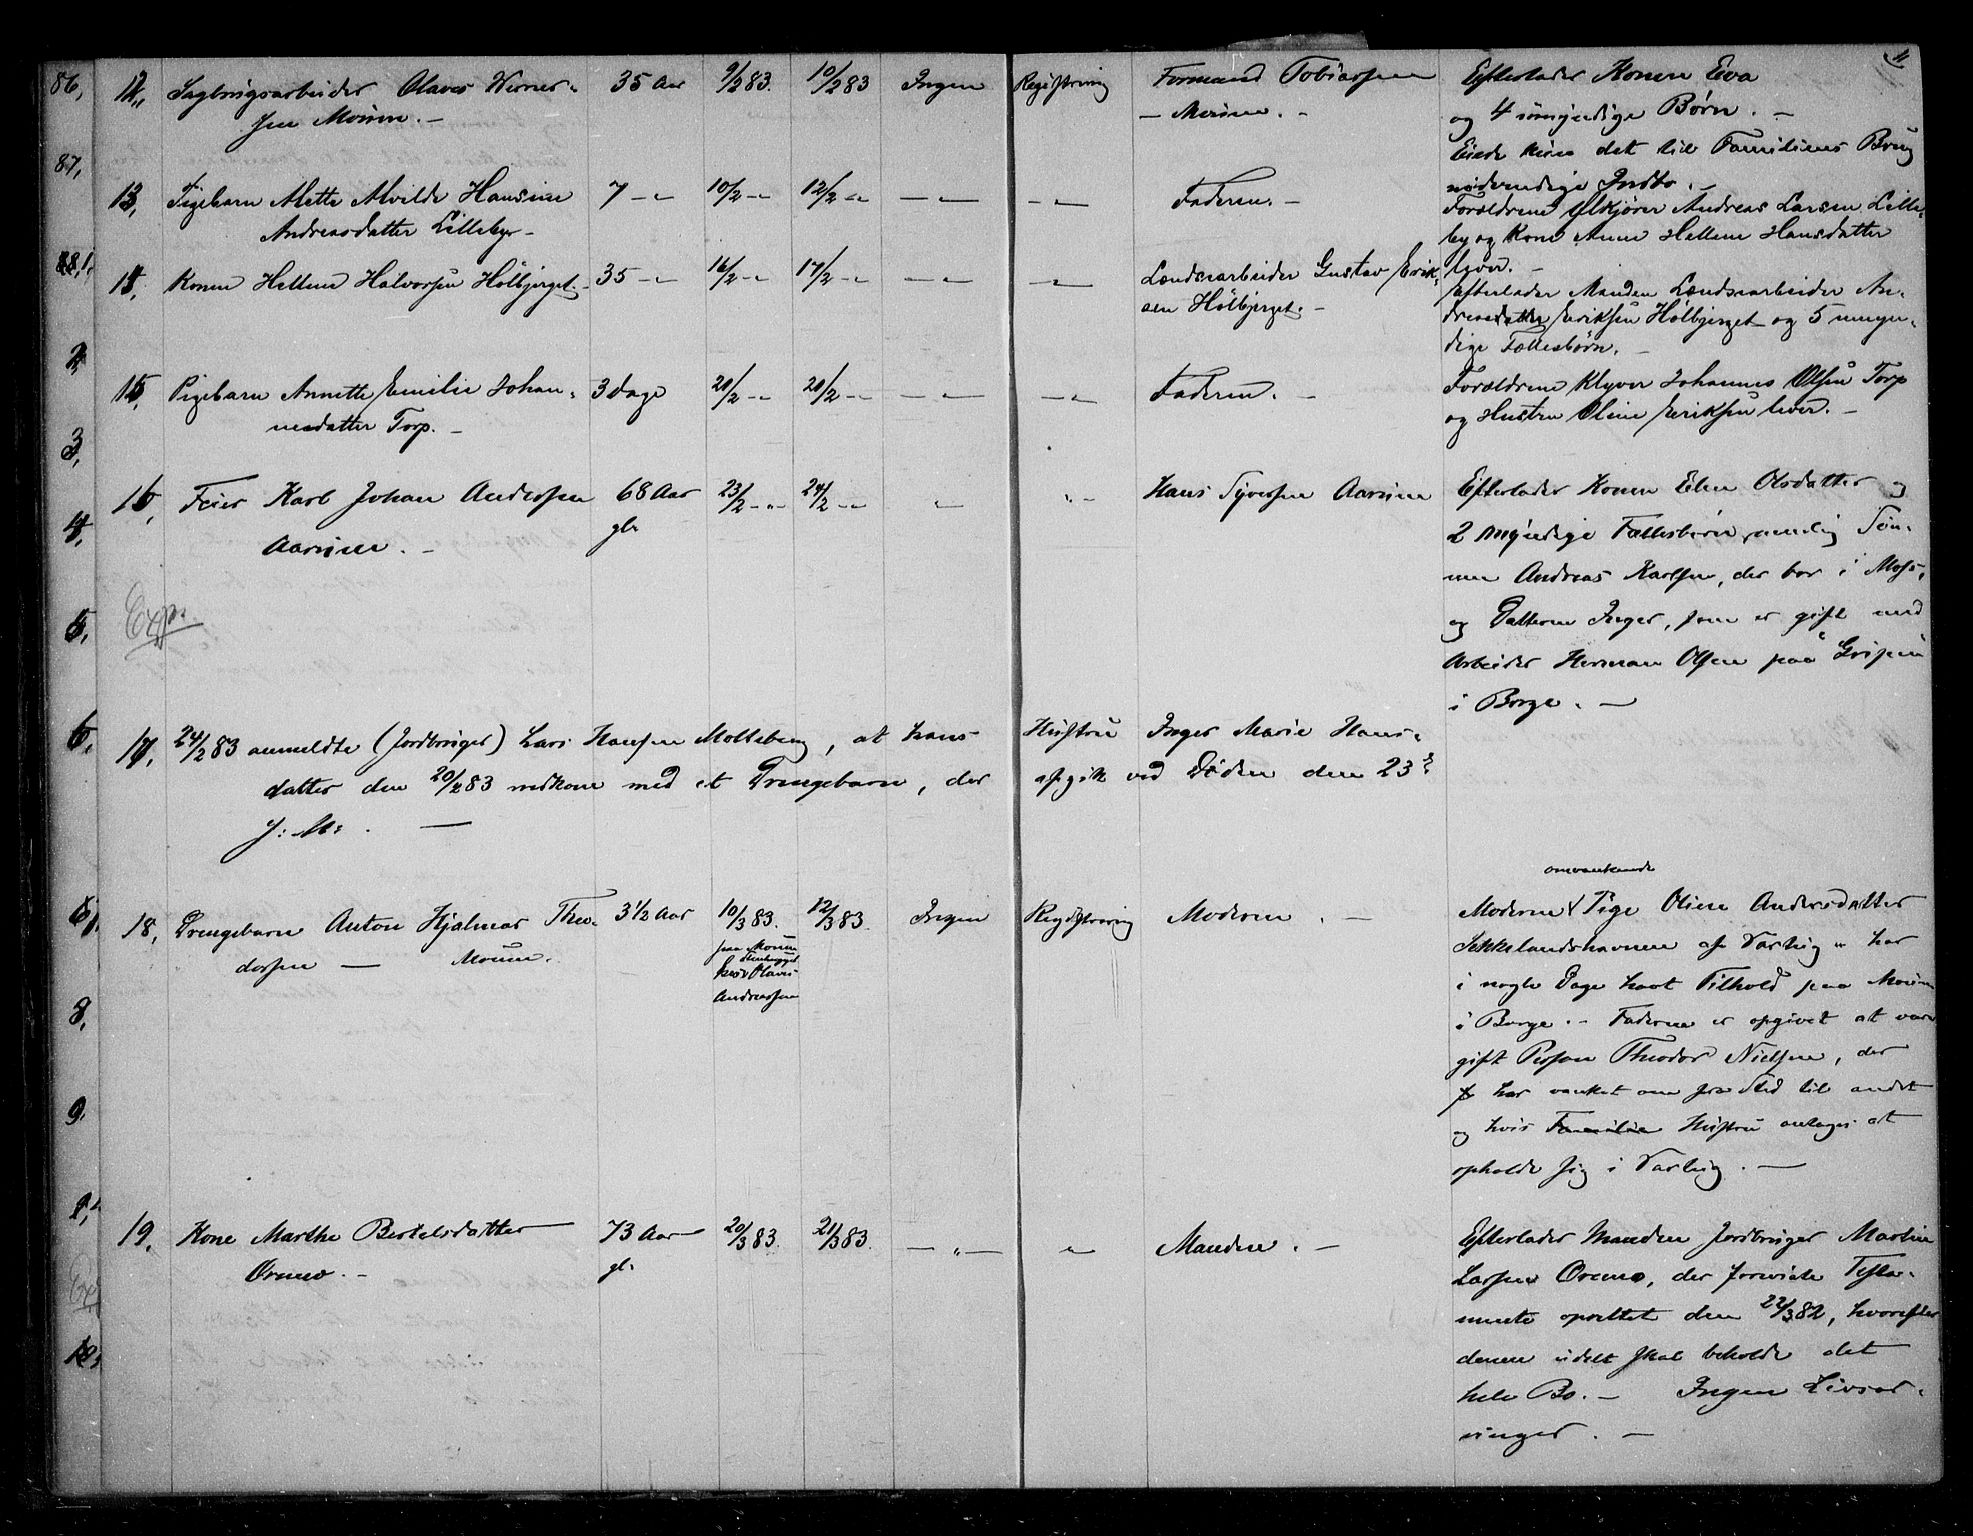 4
86,
12,
Sagbrugsarbeider Olaves Werner-
sen Moum. —
35 Aar
9/2 83.
10/2 83
Ingen
Registrering
Formand Tobiassen
— Moum. —
Efterlader Konen Eva
og 4 umyndige Børn. —
Eiede kun det til Familiens Brug
nødvendige Indbo. —
87,
13,
Pigebarn Mette Alvilde Hansine
Andreasdatter Lilleby —
7 — "
10/2 — "
12/2 — "
— " —
— " —
Faderen. —
Forældrene Andreas Larsen Lille-
by og Kone Anne Hellene Hansdatter
lever. —
88,1.
14,
Konen Hellene Halvorsen Holbjerget. —
35 — "
16/2 — "
17/2 — "
— " —
— " —
Lændsearbeider Gustav Erik-
sen Holbjerget. —
Efterlader Manden Lændsearbeider An-
dreas Eriksen Holbjerget og 5 umyn-
dige Fællesbørn. —
2,
15,
Pigebarn Annette Emilie Johan-
nesdatter Torp. —
3 dage
20/2 — "
20/2 — "
— " —
— " —
Faderen. —
Forældrene Johannes Olsen Torp
og Hustru Oline Eriksen lever. —
3,
16,
Feier Karl Johan Andersen
Aarum. —
68 Aar
gl.
23/2 — " —
24/2 — "
"
" —
Hans Syversen Aarum
Efterlader Konen Elen Olsdatter og
2 myndige Fællesbørn, nemlig Søn-
nen Andreas Karlsen, der bor i Moss,
og Datteren Inger, som er gift med
Arbeider Herman Olsen paa Gripen
i Borge. —
4,
5,
Exp.
6,
17,
24/2 83 anmeldte (Jordbruger) Lars Hansen Molteberg, at hans Hustru Inger Marie Hans-
datter den 20/2 83 nedkom med et Drengebarn, der afgik ved Døden den 23
—
18,
Drengebarn Anton Hjalmar Theo-
dorsen — Moum.
3½ Aar
10/3 83.
paa Moum
hos Olaves
Andreassen
12/3 83.
Ingen
Registrering
Moderen. —
omvankende
Moderen Pige Oline Andersdatter
Sekkelandshavnen af Varteig — har
i nogle Dage havt Tilhold paa Moum
i Borge. — Faderen er opgivet at være
gift Person Theodor Nielsen, der
har vanket om fra Sted til andet
og hvis Familie Hustru antages at
opholde sig i Varteig. —
8,
9,
19,
Kone Marthe Bertelsdatter
Oremo. —
73 Aar
gl.
20/3 83.
21/3 83.
— " —
"
Manden. —
Efterlader Manden Jordbruger Martin
Larsen Oremo, der foreviste Testa-
mente oprettet den 22/3 82, hvorefter
denne udelt skal beholde det
hele Bo. — Ingen Livsar-
vinger. —